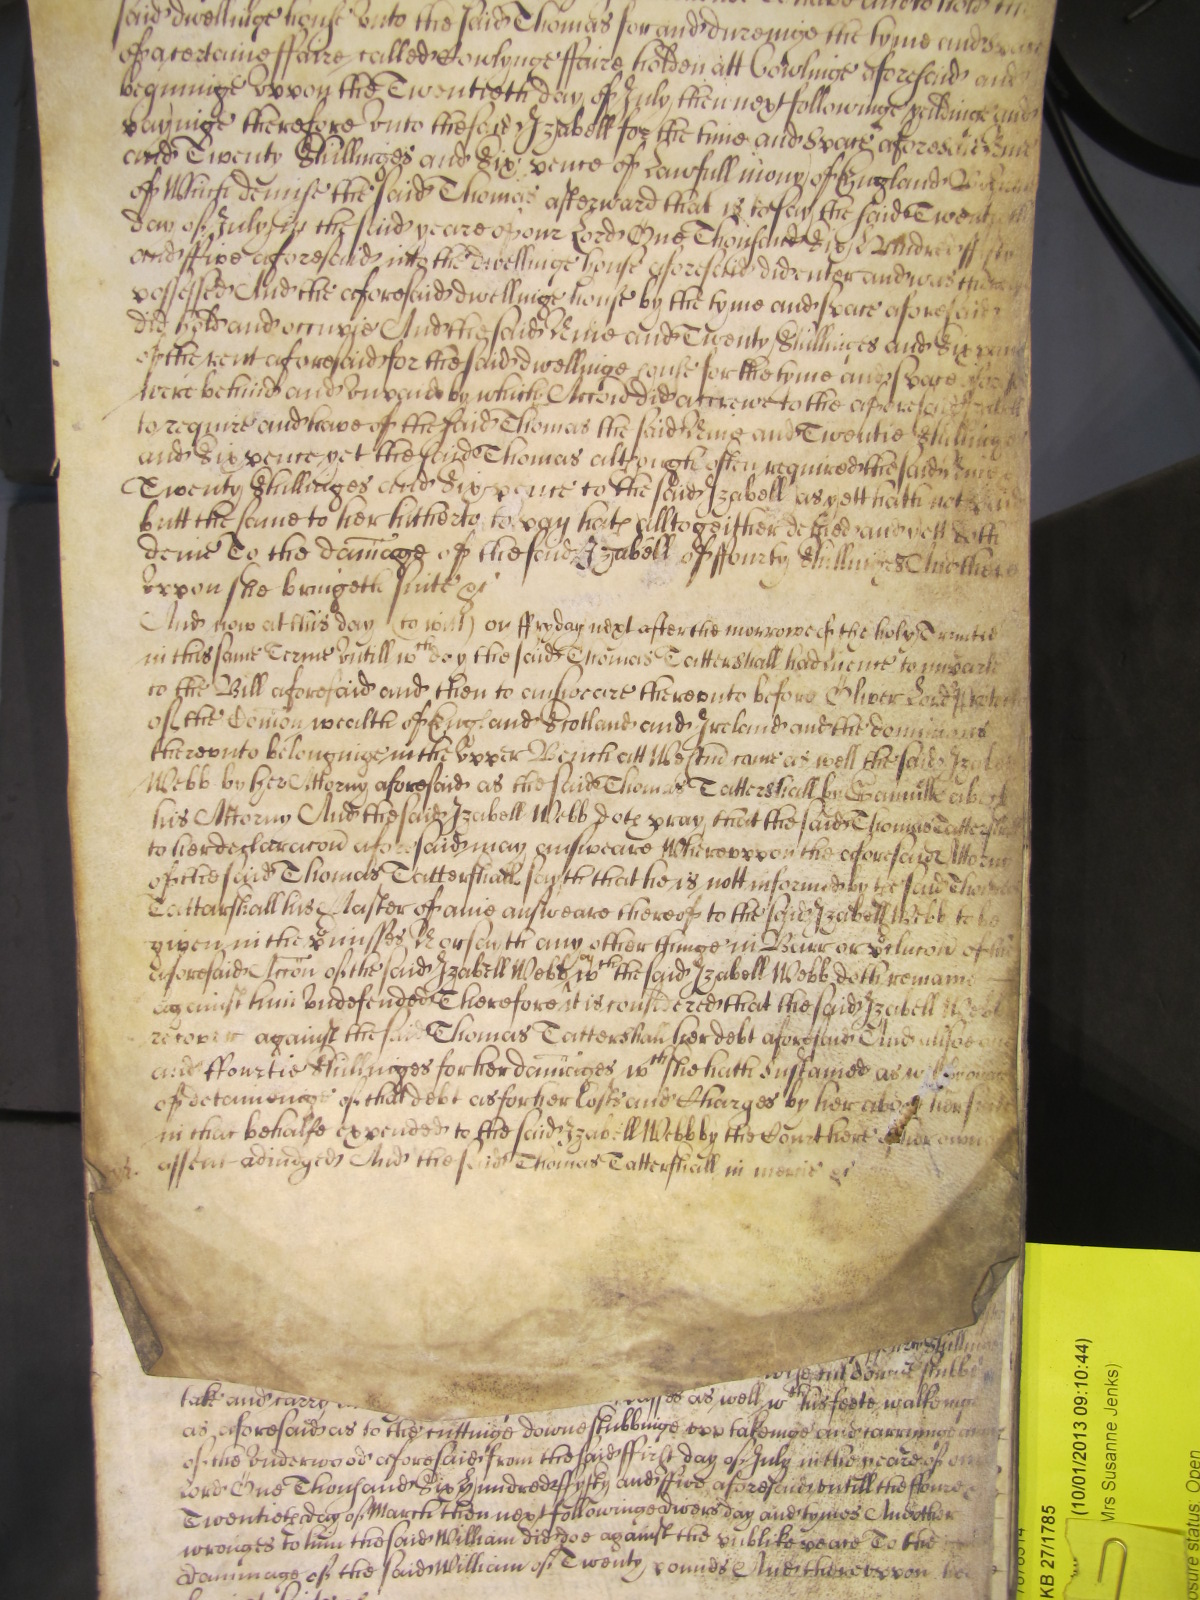 said dwellinge house unto the said Thomas for and dureinge the tyme and space
of a certaine ffaire called Cowlynge ffaire holden att Cowlinge aforesaid and
beginninge uppon the Twentieth day of July then next followinge yeildinge and
payinge therefore unto the said Izabell for the time and space aforesaid Nine
and Twenty Shillinges and Six pence of Lawfull mony of England
of Which demise the said Thomas afterward that is to say the said Twentieth
day of July in the said yeare of our Lord One Thousand Six Hundred ffifty
and ffive aforesaid into the dwellinge house aforesaid did enter and was thereof
possessed And the aforesaid dwellinge house by the tyme and space aforesaid
did hold and occupie And the said Nine and Twenty Shillinges and Six pence
of the rent aforesaid for the said dwellinge house for the tyme and space aforesaid
were behind and unpaid by which Accon did accrewe to the aforesaid Izabell
to require and have of the said Thomas the said Nine and Twentie Shillinges
and Six pence yet the said Thomas although often required the said Nine
Twenty Shillinges and Six pence to the said Izabell as yett hath not paid
butt the same to her hitherto to pay hath alltogeither denied and yett doth
denie To the damage of the said Izabell of ffourty Shillinges And there
uppon she bringeth suite &c
And now at this day (to witt) on ffryday next after the morrowe of the holy Trinitie
in this same Terme untill wch day the said Thomas Tattershall had licence to imparle
to the Bill aforesaid and then to answeare thereunto before Oliver Lord Protector
of the Comon wealth of England Scotland and Ireland and the dominions
thereunto belonginge in the Upper Bench att Westmr came as well the said Izabell
Webb by her Attorny aforesaid as the said Thomas Tattershall by Samuell
his Attorny And the said Izabell Webb doth pray that the said Thomas Tattershall
to her declaracon aforesaid may answeare Whereuppon the aforesaid Attorny
of the said Thomas Tattershall sayth that he is nott informed by the said Thomas
Tattarshall his Master of anie answeare thereof to the said Izabell Webb to be
given in the premisses Nor sayth any other thinge in Barr or preclucon of the
aforesaid Accon of the said Izabell Webb by wch the said Izabell Webb doth remaine
against him undefended Therefore it is considered that the said Izabell Webb
recover against the said Thomas Tattershall her debt aforesaid And alsoe one
and ffourtie Shillinges for her damages wch she hath sustained as well by
of deteineinge of that debt as for her Costs and Charges by her about her suite
in that behalfe expended to the said Izabell Webb by the Court here of her owne
assent adjudged And the said Thomas Tattershall in mercie &c
take and carry
as well wth his feete walkeinge
as aforesaid as to the cuttinge downe stubbinge upp takeinge and carryinge away
of the Underwood aforesaid from the said ffirst day of July in the yeare of our
Lord One Thousand Six Hundred ffyfty and ffive aforesaid untill the ffoure
Twentieth day of March then next followinge divers day and tymes And other
wronges to him the said William did doe against the publike peace To the
dammage of the said William of Twenty pounds And thereuppon hee
KB 27/1785
(10/01/2013 09:10:44)
Mrs Susanne Jenks)
osure status: Open